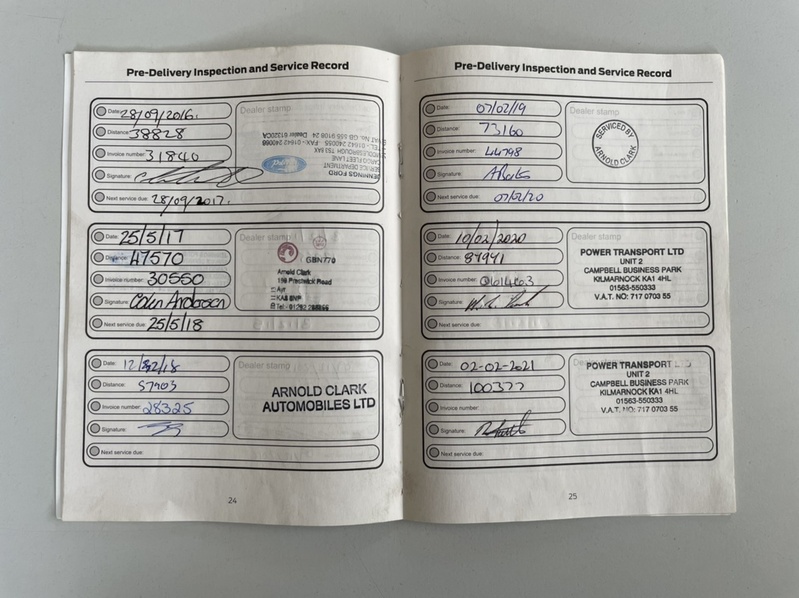 Pre-Delivery Inspection and Service Record
Date: 28/09/2016.
Distance: 38828
Invoice number: 31840
Signature:
Next service due: 28/09/2017.
Dealer stamp
JENNINGS FORD
SERVICE DEPARTMENT
CARGO FLEET LANE
MIDDLESBROUGH TS3 8AX
TEL:- 01642 240055 FAX:- 01642 240088
Ford
Date: 25/5/17
Distance: 47570
Invoice number: 30550
Signature: Colin Anderson
Next service due: 25/5/18
Dealer stamp
GBN770
Arnold Clark
196 Prestwick Road
Ayr
KA8 8NP
Tel:- 01292
Date:
Distance: 57903
Invoice number: 28325
Signature:
Next service due:
Dealer stamp
ARNOLD CLARK
AUTOMOBILES LTD
24
Pre-Delivery Inspection and Service Record
Date: 07/02/19
Distance: 73160
Invoice number: 44798
Signature:
Next service due: 07/02/20
Dealer stamp
SERVICED BY
ARNOLD CLARK
Date: 10/02/2020
Distance: 84941
Invoice number:
Signature:
Next service due:
Dealer stamp
POWER TRANSPORT LTD
UNIT 2
CAMPBELL BUSINESS PARK
KILMARNOCK KA1 4HL
01563-550333
V.A.T. NO: 717 0703 55
Date: 02-02-2021
Distance: 100377
Invoice number:
Signature:
Next service due:
Dealer stamp
POWER TRANSPORT LTD
UNIT 2
CAMPBELL BUSINESS PARK
KILMARNOCK KA1 4HL
01563-550333
V.A.T. NO: 717 0703 55
25